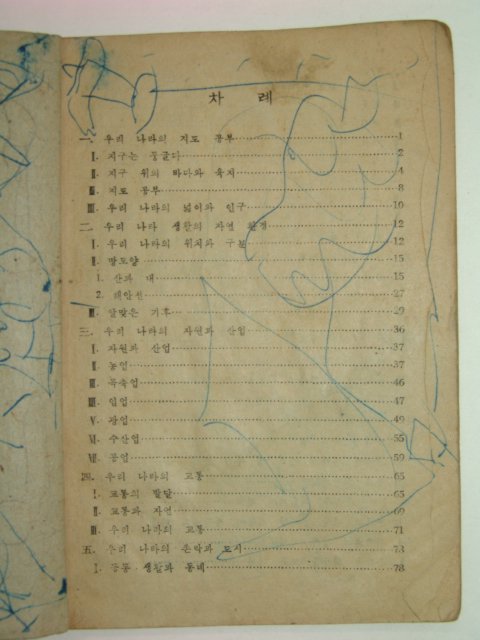 차 례
一. 우리 나라의 지도 공부 1
Ⅰ. 지구는 둥글다 2
Ⅱ. 지구 위의 바다와 육지 4
Ⅲ. 지도 공부 8
Ⅲ. 우리 나라의 넓이와 인구 10
二. 우리 나라 생활의 자연 환경 12
Ⅰ. 우리 나라의 위치와 구분 12
Ⅱ. 땅모양 15
1. 산과 내 15
2. 해안선 27
Ⅲ. 알맞은 기후 29
三. 우리 나라의 자원과 산업 36
Ⅰ. 자원과 산업 37
Ⅱ. 농업 37
Ⅲ. 목축업 46
Ⅲ. 임업 47
Ⅴ. 광업 49
Ⅵ. 수산업 55
Ⅶ. 공업 59
四. 우리 나라의 교통 65
Ⅰ. 교통의 발달 65
Ⅱ. 교통과 자연 69
Ⅲ. 우리 나라의 교통 71
五. 우리 나라의 촌락과 도시 78
Ⅰ. 공동 생활과 동네 78